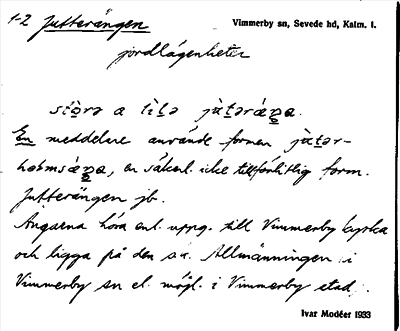 1-2 Jutterängen
Vimmerby sn, Sevede hd, Kalm. l.
jordlägenheter
En meddelare använde formen
en säkerl. icke tillförlitlig form.
Jutterängen jb.
Ängarna höra enl. uppg. till Vimmerby kyrka
och ligga på den s.k. Allmänningen i
Vimmerby sn el. möjl. i Vimmerby stad.
Ivar Modéer 1933